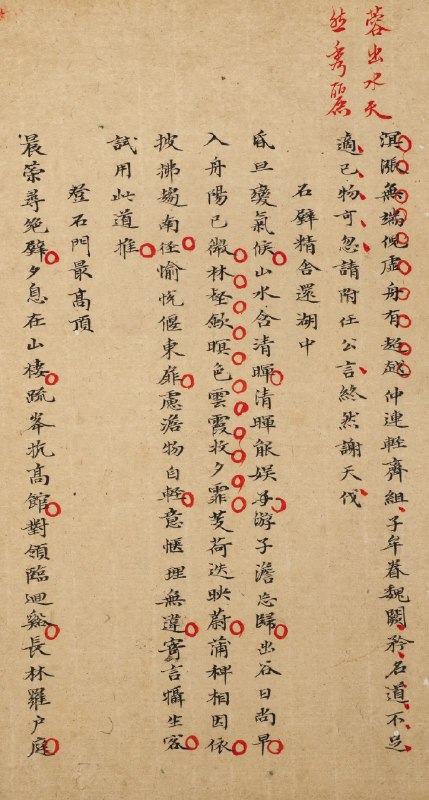 蓉出水天
然秀麗
溟漲無端倪虛舟有超越仲連輕齊組子牟眷魏闕矜名道不足
適己物可忽請附任公言終然謝天伐
石壁精舍還湖中
昏旦變氣候山水含清暉清暉能娛㳺子澹忘歸出谷日尚早
入舟陽已微林壑斂暝色雲霞收夕霏芰荷迭映蔚蒲稗相因依
披拂趨南徑愉悅偃東扉慮澹物自輕意愜理無違寄言攝生客
試用此道推
登石門最高頂
晨策尋絕壁夕息在山棲疏峯抗高館對領臨迴谿長林羅戶庭